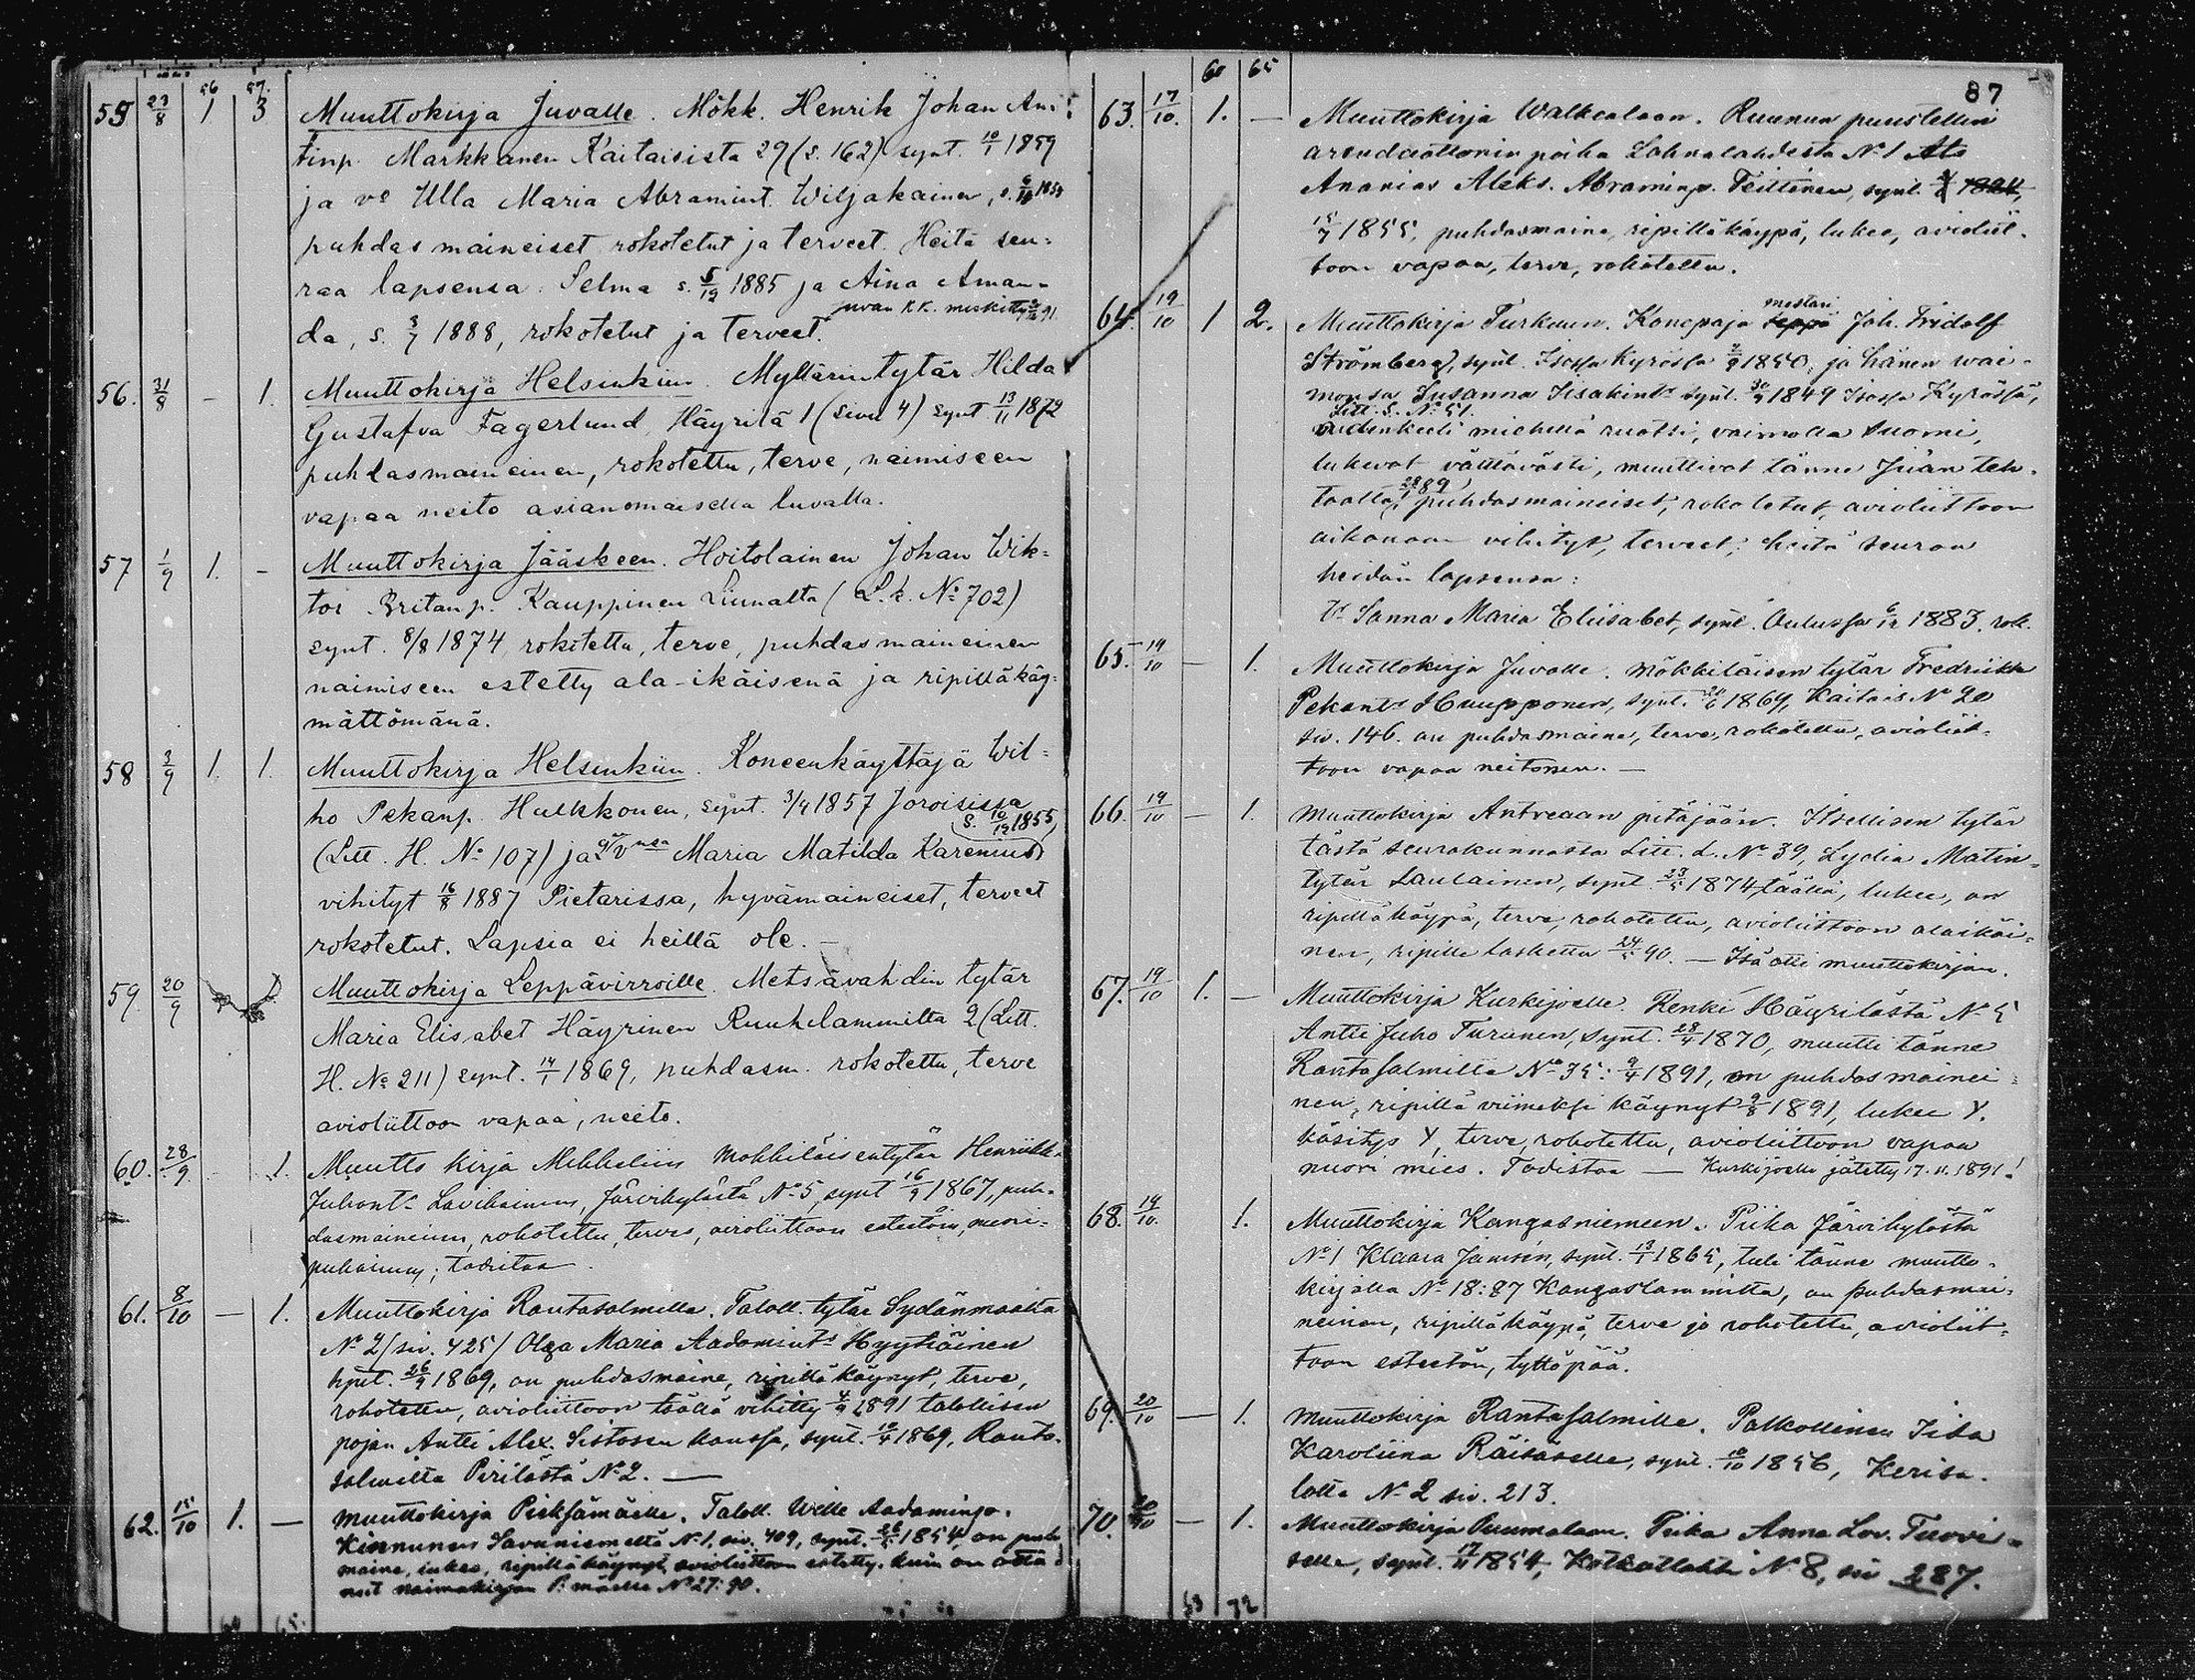 56 57.
55 23/8 1. 3 Muuttokirja Juvalle. Mökk. Henrik Johan An-
tinp. Markkanen Kaitaisista 29 (s. 162) synt. 10/1 1859
ja vo Ulla Maria Abramint. Wiljakainen, s.
puhdasmaineiset rokotetut ja terveet. Heitä seu-
raa lapsensa Selma s. 5/12 1885 ja Aina Aman-
Juvan KK.
da, s. 3/7 1888, rokotetut ja terveet.
56. 31/8 - 1. Muuttokirja Helsinkiin. Myllärin tytär Hilda
Gustafva Fagerlund, Häyrilä 1 (sivu 4) synt 13/11 1872
puhdasmaineinen, rokotettu, terve, naimiseen
vapaa neito asianomaisella luvalla.
57 1/9 1. - Muuttokirja Jääskeen. Hoitolainen Johan Wik-
tor Britanp. Kauppinen Linnalta (L.k. No 702)
synt. 8/8 1874, rokotettu, terve, puhdasmaineinen
naimiseen estetty ala-ikäisenä ja ripilläkäy-
mättömänä.
58 3/9 1. 1. Muuttokirja Helsinkiin. Koneenkäyttäjä Wil-
ho Pekanp. Hulkkonen, synt. 3/4 1857 Joroisissa
s. 10/12 1855,
(Litt. H. No 107) ja Maria Matilda Karenius
vihityt 16/8 1887 Pietarissa, hyvämaineiset, terveet
rokotetut. Lapsia ei heillä ole. -
59. 20/9 Muuttokirja Leppävirroille. Metsävahdin tytär
Maria Elisabet Häyrinen Ruuhilammilta 2 (Litt.
H. No 211) synt. 14/1 1869, puhdasm. rokotettu, terve
avioliittoon vapaa, neito.
60. 28/9. 1. Muutto kirja Mikkeliin Mökkiläisentytär Henriikka
Juhont. Lavikainen, Järvikylästä No 5, synt 16/9 1867, puh-
dasmaineinen, rokotettu, terve, avioliittoon esteetön,
; todistaa
61. 8/10 - 1. Muuttokirja Rantasalmelle. Taloll. tytär Sydänmaalta
No 2 (siv. 425) Olga Maria Aadamint. Hyytiäinen
synt. 26/9 1869, on puhdasmaine, ripillä käynyt, terve,
rokotettu, avioliittoon täällä vihitty 4/9 1891 talollisen
pojan Antti Alex. Sistosen kanssa, synt. 12/4 1869, Ranta-
salmelta Pirilästä No 2. —
62. 15/10 1. — Muuttokirja Pieksämäelle. Taloll. Wille Aadaminp.
Kinnunen Savuniemeltä No 1, siv. 409, synt. 1854, on puh-
maine, lukee, ripillä käynyt, avioliittoon estetty, kuin on otta-
nut naimakirjan P:mäelle No 27:90.
60 65
87
63. 17/10. 1. — Muuttokirja Walkealaan. Ruunun puustellin
arendaattorin poika Lohnalahdesta No 1 Ato
Ananias Aleks. Abraminp. Teittinen, synt. 1884,
15/7 1855, puhdasmaine, ripilläkäypä, lukee, avioliit-
toon vapaa, terve, rokotettu.
mestari
64. 19/10 1 2. Muuttokirja Turkuun. Konepaja seppä Joh. Fridolf
Strömberg, synt. Isossa Kyrössä 1850, ja hänen wai-
monsa Susanna Iisakint. synt. 1849 Isossa Kyrössä,
Litt. S. No 51.
äidinkieli miehellä ruotsi, vaimolla suomi,
lukevat välttävästi, muuttivat tänne
puhdasmaineiset, rokotetut, avioliittoon
aikanaan vihityt, terveet; heitä seuraa
heidän lapsensa:
Sanna Maria Eliisabet, synt. Oulussa 6/12 1883. rok.
65. 19/10 — 1. Muuttokirja Juvalle. Mökkiläisen tytär Fredriikka
Pekant. Huupponen, synt. 1869, Kaitais No 20
siv. 146. on puhdasmaine, terve, rokotettu, avioliit-
toon vapaa neitonen. —
66. 19/10 — 1. Muuttokirja Antreaan pitäjään. Itsellisen tytär
tästä seurakunnasta Litt. L. No 39, Lydia Matin-
tytär Laulainen, synt. 23/5 1874 täällä, lukee, on
ripilläkäypä, terve, rokotettu, avioliittoon alaikäi-
nen, ripille laskettu 90. — Isä otti muuttokirjan.
67. 19/10 1. — Muuttokirja Kurkijoelle. Renki Häyrilästä No 5
Antti Juho Turunen, synt. 28/4 1870, muutti tänne
Rantasalmilta No 35: 9/4 1891, on puhdasmainei-
nen, ripillä viimeksi käynyt 9/8 1891, lukee Y.
käsitys Y, terve, rokotettu, avioliittoon vapaa
nuori mies. Todistaa — Kurkijoelle jätetty 17.11.1891!
68. 19/10. 1. Muuttokirja Kangasniemeen. Piika Järvikylästä
No 1 Klaara Jämsén, synt. 13/1 1865, tuli tänne muutto-
kirjalla No 18:87 Kangaslammilta, on puhdasmai-
neinen, ripilläkäypä, terve ja rokotettu, avioliit-
toon esteetön, tyttöpää.
69. 20/10 — 1. Muuttokirja Rantasalmille. Palkollinen Iida
Karoliina Räisäselle, synt. 1856, Kerisa-
lolta No 2 siv. 213.
70. 20/10 — 1. Muuttokirja Puumalaan. Piika Anna Lov. Tuovi-
selle, synt. 17/11 1854, Kotkatlahti No 8, siv 287.
63 72